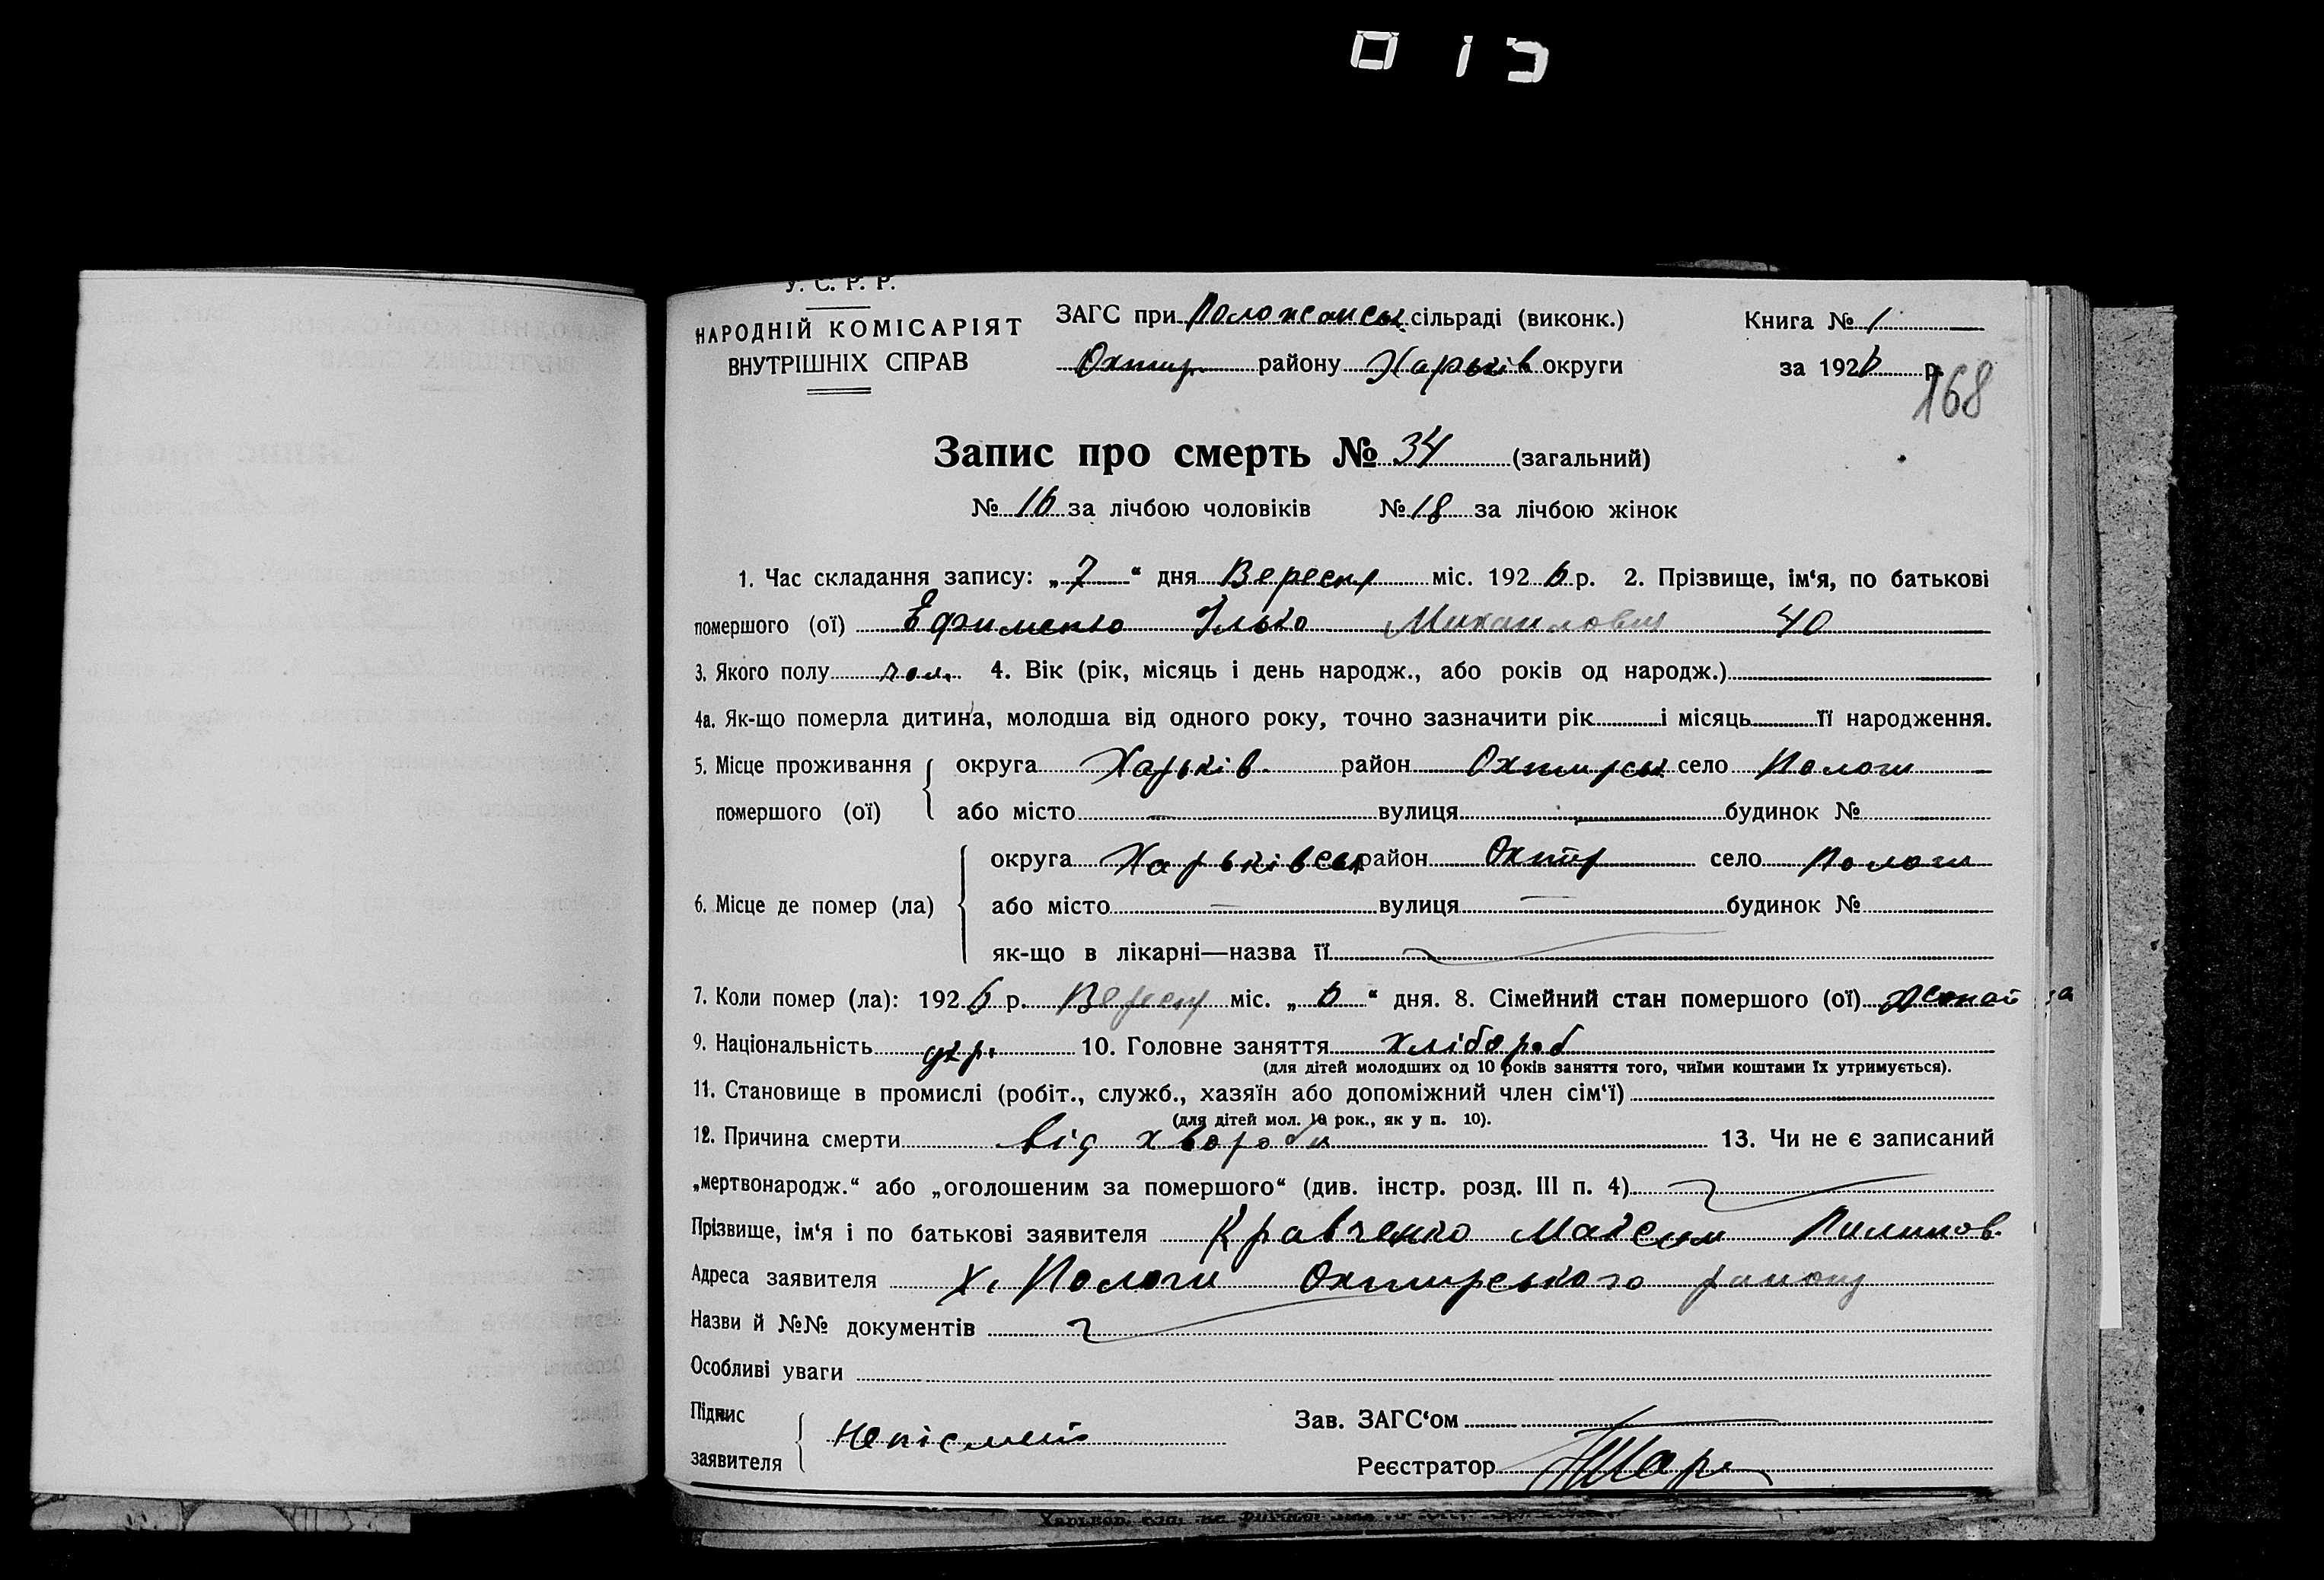 015
У. С. Р. Р.
НАРОДНІЙ КОМІСАРІЯТ
ВНУТРІШНІХ СПРАВ
ЗАГС при сільраді (виконк.)
Охтир. району Харьків округи
Книга № 1
за 1926 р.
168
Запис про смерть № 34 (загальний)
№ 16 за лічбою чоловіків № 18 за лічбою жінок
1. Час складання запису: „7“ дня Вересня міс. 1926 р. 2. Прізвище, ім‘я, по батькові
помершого (ої) Ефименко Ілько Михайлович 40
3. Якого полу чол. 4. Вік (рік, місяць і день народж., або років од народж.)
4а. Як-що померла дитина, молодша від одного року, точно зазначити рік і місяць її народження.
5. Місце проживання помершого (ої) округа Харьків район Охтирськ село Пологи
або місто — вулиця — будинок №
6. Місце де помер (ла) округа Харьківськ район Охтир село Пологи
або місто — вулиця — будинок №
як-що в лікарні—назва її
7. Коли помер (ла): 1926 р. Вересня міс. „6“ дня. 8. Сімейний стан помершого (ої)
9. Національність укр. 10. Головне заняття хлібороб
(для дітей молодших од 10 років заняття того, чиїми коштами їх утримується).
11. Становище в промислі (робіт., служб., хазяїн або допоміжний член сім‘ї)
(для дітей мол. 10 рок., як у п. 10).
12. Причина смерти від хвороби 13. Чи не є записаний
„мертвонародж.“ або „оголошеним за помершого“ (див. інстр. розд. III п. 4)
Прізвище, ім‘я і по батькові заявителя Кравченко Максим
Адреса заявителя х. Пологи Охтирського району
Назви й №№ документів
Особливі уваги
Підпис заявителя
Зав. ЗАГС‘ом
Реєстратор